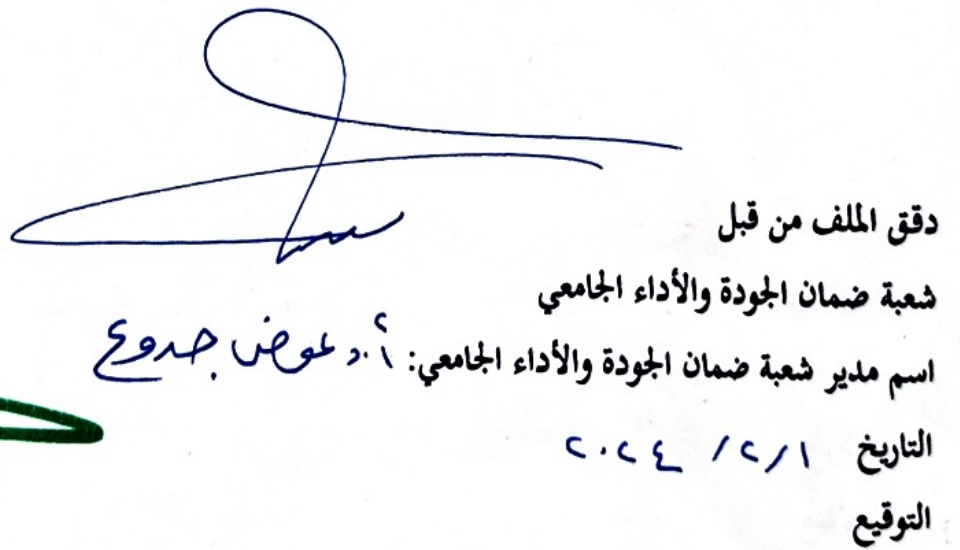 دقق الملف من قبل
شعبة ضمان الجودة والأداء الجامعي
اسم مدير شعبة ضمان الجودة والأداء الجامعي: أ.د عوض جدوع
التاريخ ١/ ٢/ ٢٠٢٤
التوقيع